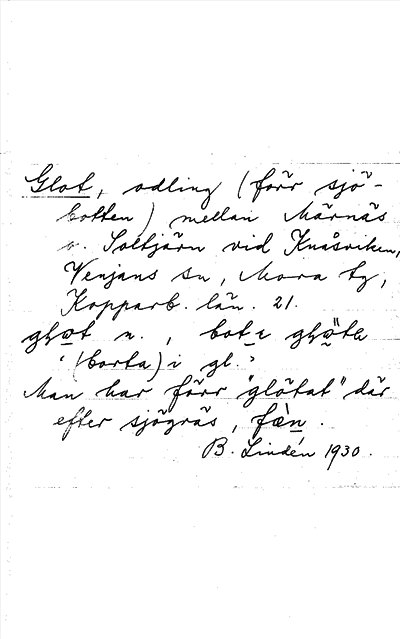 Glot, odling (förr sjö-
botten) mellan Märnäs
o. Soltjärn vid Knåsviken,
Venjans sn, Mora tg,
Kopparb. län. 21.
n., bot
(borta) i gl.
Man har förr "glötat" där
efter sjögräs, fæ̀n.
B. Lindén 1930.